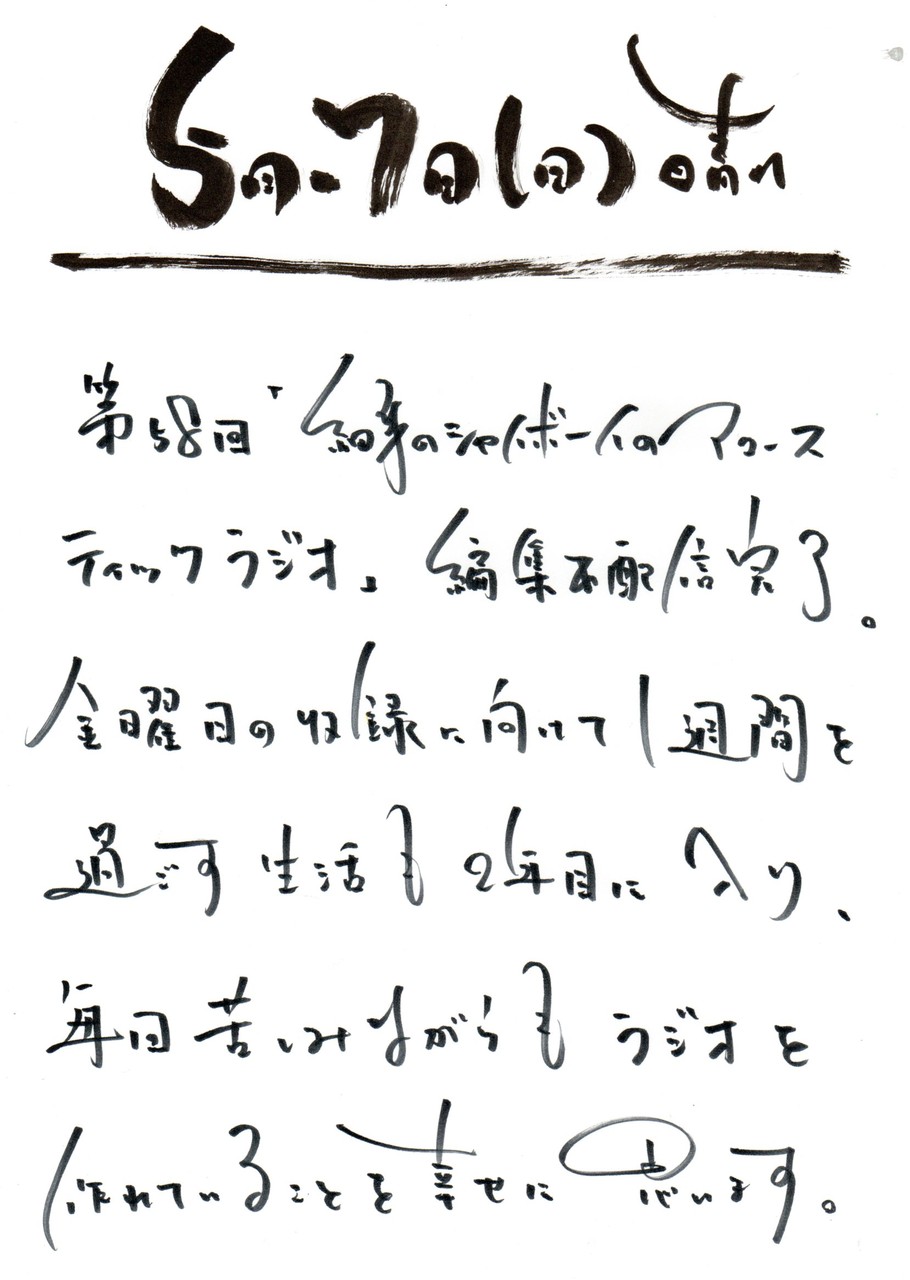 5月7日(日)晴れ
第58回「緑芽のシャイボーイのアコース
ティックラジオ」編集&配信完了。
金曜日の収録に向けて1週間を
過ごす生活も2年目に入り、
毎回苦しみながらもラジオを
作れていることを幸せに思います。